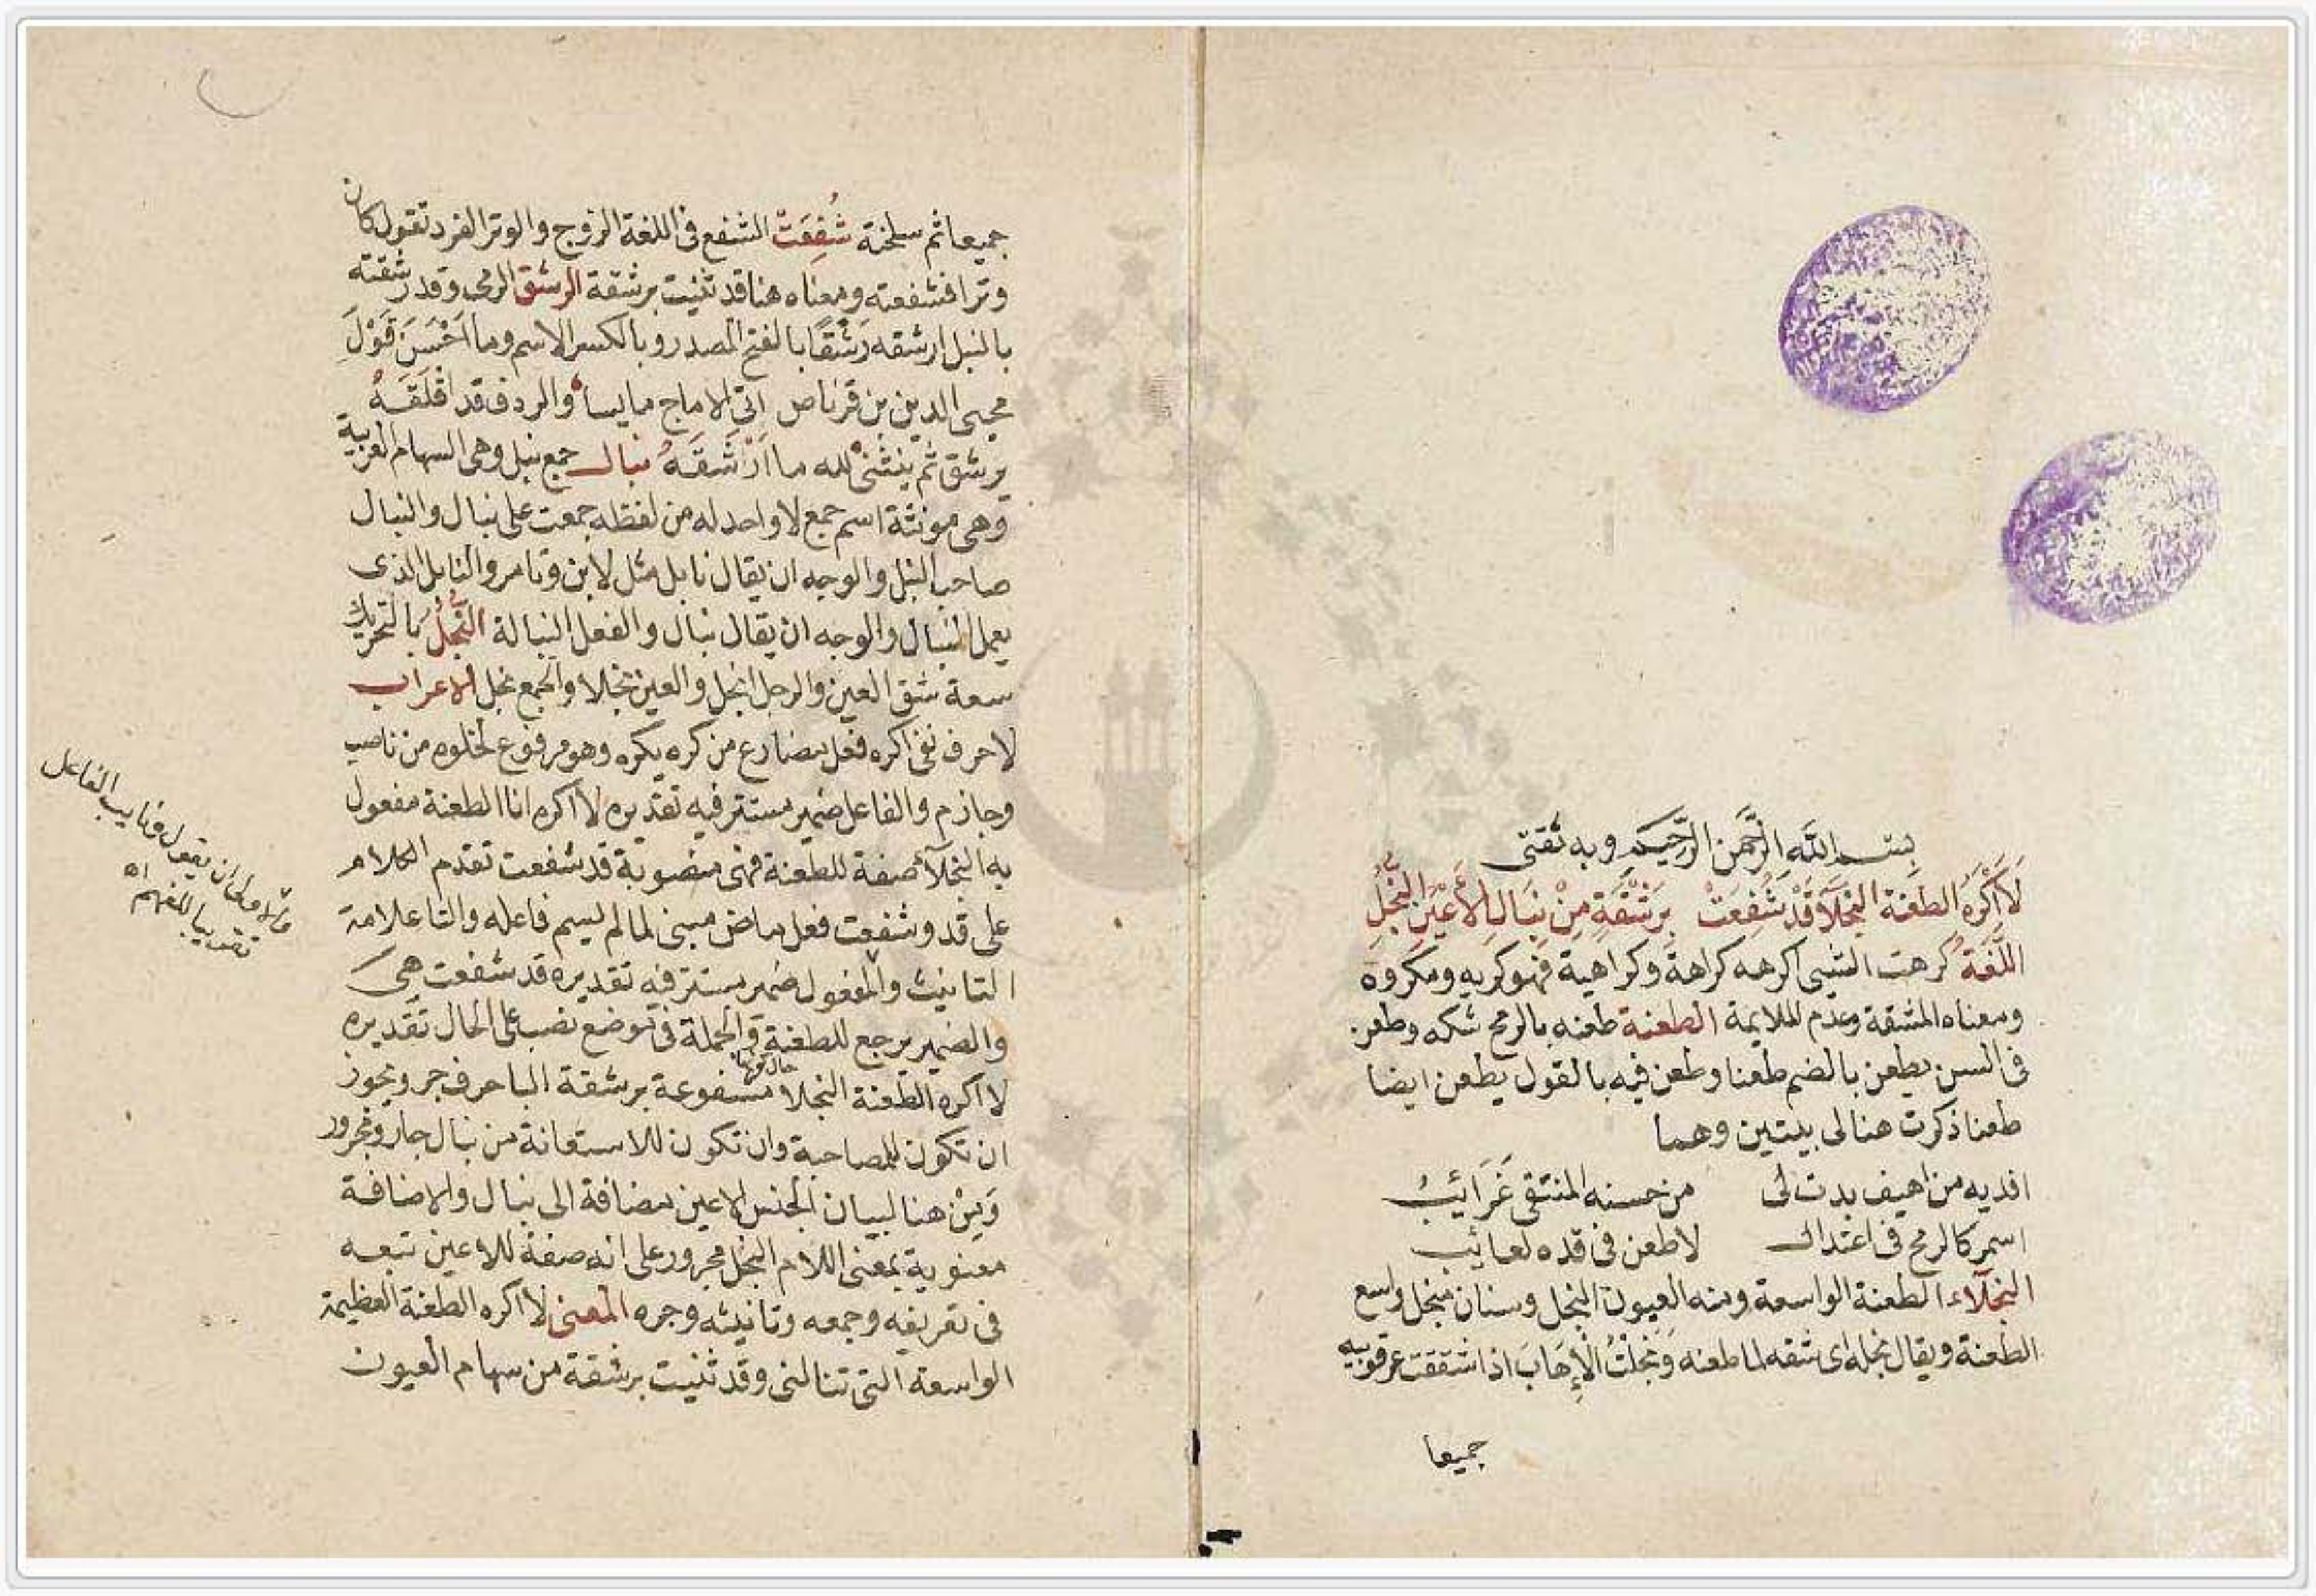 بسم الله الرَّحمن الرَّحيم وبه ثقتى
لَا أَكْرَهُ الطعْنة النجْلَا قَدْ شُفِعَتْ بِرَشْقَةٍ مِنْ نِبَالِ الأَعْيُنِ النُّجُلِ
اللُّغَةُ كرهت الشيى اكرهه كراهة وكراهية فهو كريه ومكروه
ومعناه المشقة وعدم الملايمة الطعنة طعنه بالرمح شكه وطعن
فى السن يطعن بالضم طعنا وطعن فيه بالقول يطعن ايضا
طعنا ذكرت هنا لى بيتين وهما
افديه من اهيف بدت لى من حسنه المنتقى غَرَائبُ
اسمر كالرمح فى اعتدال لا طعن فى قده لعائب
النجلَاء الطعنة الواسعة ومنه العيون النجل وسنان منجل واسع
الطعنة ويقال نجله اى شقه لما طعنه وَنجلتُ الْإِهَابَ اذا شققت عرقوبيه
جميعا
جميعا ثم سلخته شُفِعَتْ الشفع فى اللغة الزوج والوتر الفرد تقول كان
وترا فشفعته ومعناه هنا قد ثنيت برشقة الرشق الرمى وقد رشقته
بالنبل ارشقه رَشْقًا بالفتح المصدر وبالكسر الاسم وما اَحْسَنَ قَوْلَ
محيى الدين بن قرناص اتى الاماج مايسا والردف قد اقلَقَهُ
يرشق ثم ينثنى لله ما اَرْشَقَهُ نبال جمع نبل وهى السهام العربية
وهى مونثة اسم جمع لا واحد له من لفظه جمعت على نبال والنبال
صاحب النبل والوجه ان يقال نابل مثل لابن وتامر والنابل الذى
يعمل النبال والوجه ان يقال نبال والفعل النبالة النُّجُلُ بالتحريك
سعة شق العين والرجل انجل والعين نجلا والجمع نجل الاعراب
لا حرف نفى اكره فعل مضارع من كره يكره وهو مرفوع لخلوه من ناصب
وجازم والفاعل ضمير مستتر فيه تقديره لا اكره انا الطعنة مفعول
به النجلآ صفة للطعنة فهى منصوبة قد شفعت تقدم الكلام
على قد وشفعت فعل ماض مبنى لما لم يسم فاعله والتا علامة
التانيث والمفعول ضمير مستتر فيه تقديره قد شفعت هى
والضمير يرجع للطعنة والجملة فى موضع نصب على الحال تقديره
لا اكره الطعنة النجلا حال كونها مشفوعة برشقة البا حرف جر ويجوز
ان تكون للمصاحبة وان تكون للاستعانة من نبال جار ومجرور
وَمِنْ هنا لبيان الجنس الاعين مضافة الى نبال والاضافة
معنوية بمعنى اللام النجل مجرور على انه صفة للاعين تتبعه
فى تعريفه وجمعه وتانيثه وجره المعنى لا اكره الطعنة العظيمة
الواسعة التى تنالنى وقد ثنيت برشقة من سهام العيون
ان يقول ونايب الفاعل
تقريبا للفهم اه